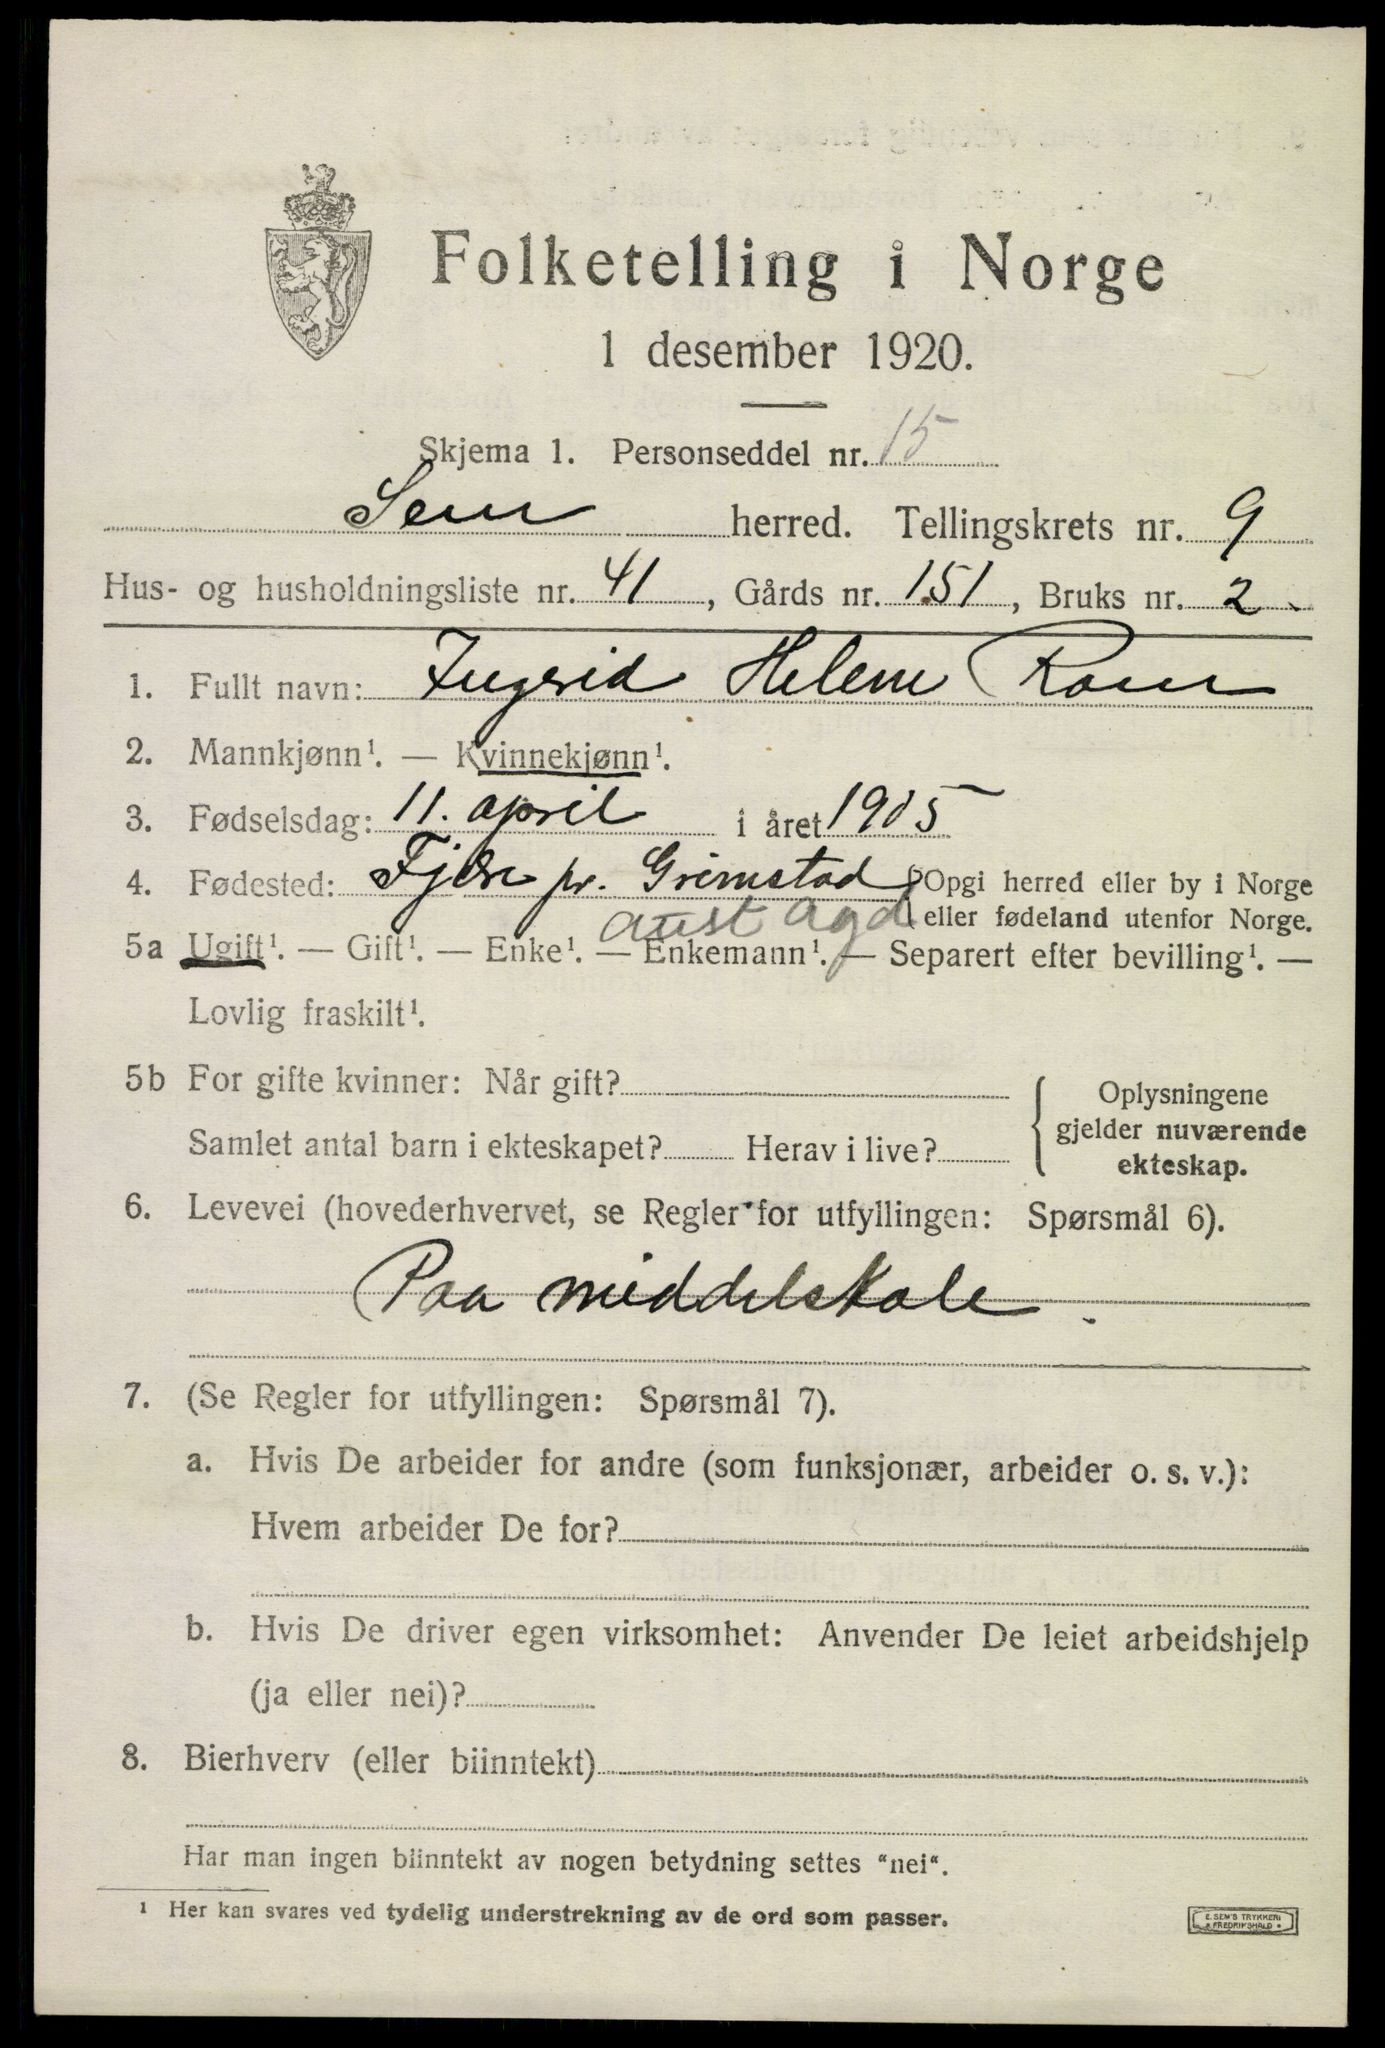 Folketelling i Norge
1 desember 1920.
Skjema 1. Personseddel nr. 15
Sem herred. Tellingskrets nr. 9
Hus- og husholdningsliste nr. 41, Gårds nr. 151, Bruks nr. 2.
1. Fullt navn: Ingrid Helene
2. Mannkjønn¹. — Kvinnekjønn¹.
3. Fødselsdag: 11. april i året 1905
4. Fødested: Fjære pr. Grimstad { Opgi herred eller by i Norge
aust agd eller fødeland utenfor Norge.
5a Ugift¹. — Gift¹. — Enke¹. — Enkemann¹. — Separert efter bevilling¹. —
Lovlig fraskilt¹.
5b For gifte kvinner: Når gift?
Samlet antal barn i ekteskapet? Herav i live?
{ Oplysningene
gjelder nuværende
ekteskap.
6. Levevei (hovederhvervet, se Regler for utfyllingen: Spørsmål 6).
Paa middelskole.
7. (Se Regler for utfyllingen: Spørsmål 7).
a. Hvis De arbeider for andre (som funksjonær, arbeider o. s. v.):
Hvem arbeider De for?
b. Hvis De driver egen virksomhet: Anvender De leiet arbeidshjelp
(ja eller nei)?
8. Bierhverv (eller biinntekt)
Har man ingen biinntekt av nogen betydning settes "nei".
¹ Her kan svares ved tydelig understrekning av de ord som passer.
E. SEM'S TRYKKERI
FREDRIKSHALD